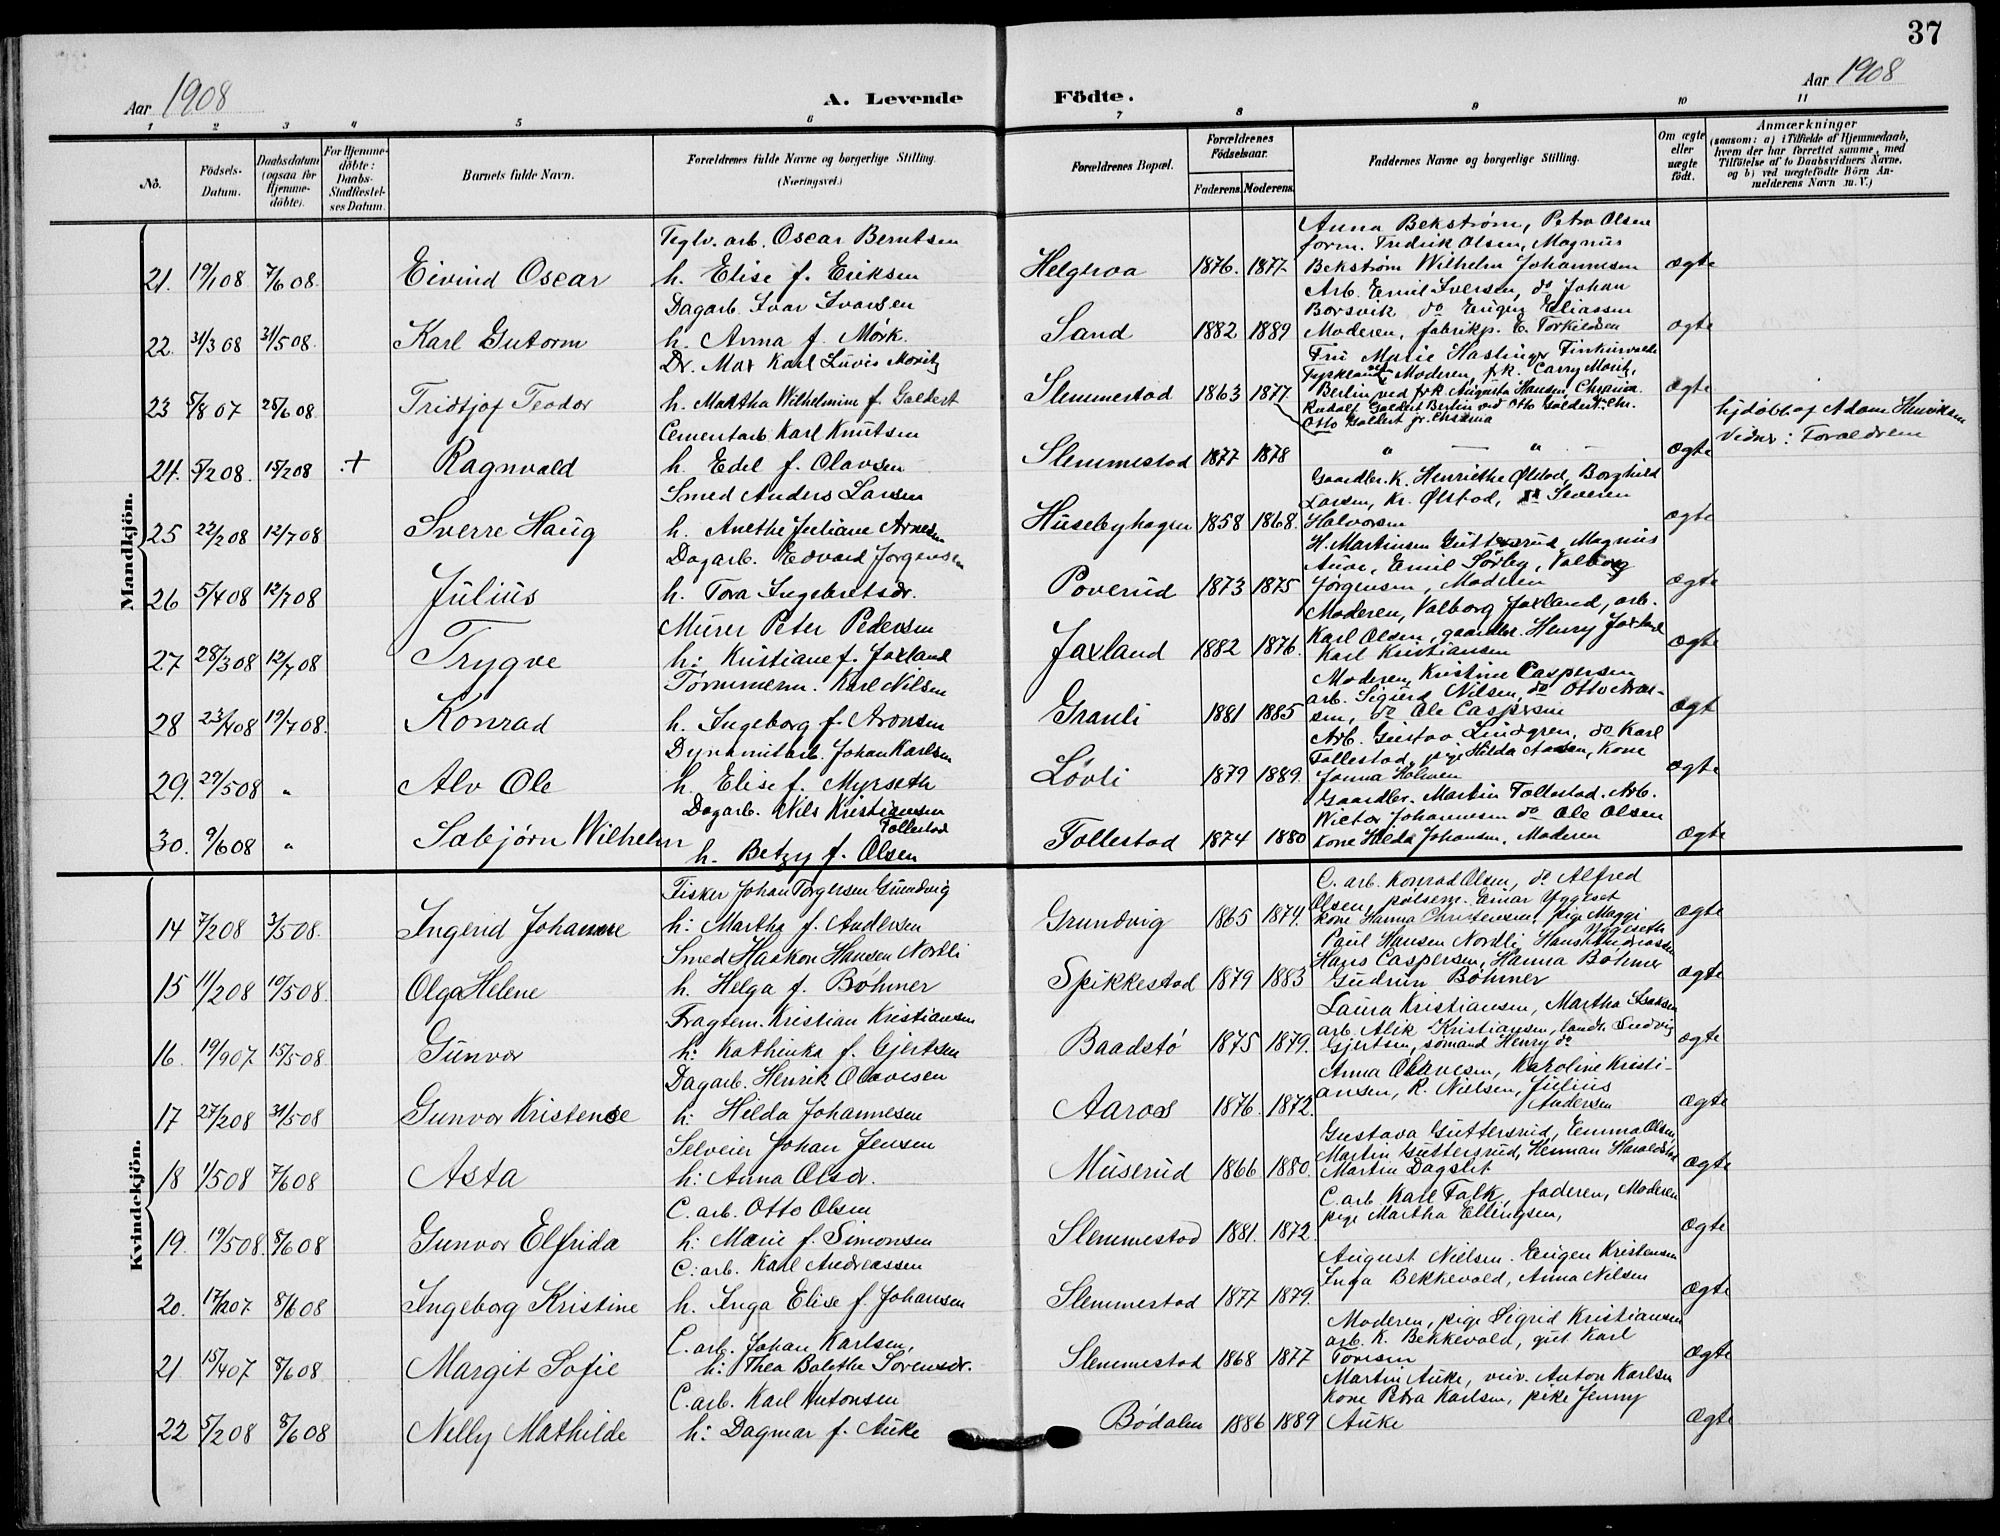 37
Aar 1908
A. Levende
Födte.
Aar 1908
1 2 3 4 5 6 7 8 9 10 11
No.
Födsels-Datum.
Daabsdatum (ogsaa for Hjemme-döbte).
For Hjemme-döbte: Daabs-Stadfæstel-ses Datum.
Barnets fulde Navn.
Forældrenes fulde Navne og borgerlige Stilling. (Næringsvei.)
Forældrenes Bopæl.
Forældrenes Födselsaar.
Faderens. Moderens.
Faddernes Navne og borgerlige Stilling.
Om ægte eller uægte födt.
Anmærkninger
(saasom: a) i Tilfælde af Hjemmedaab, hvem der har forrettet samme, med Tilföielse af to Daabsvidners Navne, og b) ved uægtefödte Börn An-melderens Navn m. V.)
Mandkjön.
Teglv. arb. Oscar Berntsen
21. 19/1 08 7/6 08. Eivind Oscar h. Elise f. Eriksen Helgeroa 1876. 1877. ægte
Anna Bekstrøm, Petra Olsen
form. Fredrik Olsen, Magnus
Bekstrøm Wilhelm Johannesen
Dagarb. Ivar Ivarsen
22. 31/3 08 31/5 08. Karl Gutorm h. Anna f. Mørk. Sand 1882 1889 ægte
Arb. Emil Iversen, do Johan
Borsvik do Eugen Eliassen
Moderen, fabrikp. E. Torkildsen
Dr. Max Karl Luvis Moritz
23 5/8 07 25/6 08. Fridtjof Teodor h. Martha Wilhelmine f. Galdert Slemmestad 1863 1877. ægte
Fru Marie Haslinger Finkurvalde
Tyskland Moderen, frk. Carry Moritz,
Berlin ved frk Augusta Hansen, Chrania.
Rudolf Galdert Berlin ved Otto Galdert Chr.
Otto Galdert jr. Chrania
Cementarb. Karl Knutsen
24. 5/2 08. 15/2 08 .+ Ragnvald h. Edel f. Olavsen Slemmestad 1877 1878 " — " — ægte
hjdøbt af Adam Henriksen
Vidner: Forældrene
Smed Anders Larsen
25 22/2 08 12/7 08 Sverre Haug h. Anethe Juliane Arnesen Husebyhagen 1858 1868. ægte
Gaardbr. K. Henriette Ølstad, Borghild
Larsen, Kr. Ølstad, Severin
Halvorsen
Dagarb. Edvard Jørgensen
26 5/4 08 12/7 08 Julius h. Tora Ingebretsdr. Poverud 1873 1875 ægte
H. Martinsen Guttersrud, Magnus
Auve, Emil Sørby, Valborg
Jørgensen, Moderen
Murer Peter Pedersen
27 28/3 08 12/7 08 Trygve h: Kristiane f. Jaxland Jaxland 1882 1876. ægte
Moderen, Valborg Jaxland, arb.
Karl Olsen, gaardbr. Henry Jaxland
Karl Kristiansen
Tømmerm. Karl Nilsen
28 23/4 08 19/7 08. Konrad h. Ingeborg f. Aronsen Granli 1881 1885 ægt
Moderen, Kristine Caspersen
arb. Sigurd Nilsen, do Otto Aron-
sen, do Ole Caspersen
Dynamitarb. Johan Karlsen
29. 29/5 08 " Alv Ole h. Elise f. Myrseth Løvli 1879 1889. ægte
Arb. Gustav Lindgren, do Karl
Follestad, pige Hilda Aasen, Kone
Janna Holmen
Dagarb. Nils Kristiansen
Follestad
30. 9/6 08 " Sæbjørn Wilhelm h. Betzy f. Olsen Follestad 1874 1880 ægte
Gaardbr. Martin Follestad. Arb.
Victor Johannesen do Ole Olsen
kone Hilda Johansen, Moderen
Kvindekjön.
Fisker Johan Torgersen Grundvig
14 7/2 08 3/5 08. Ingerid Johanne h: Martha f. Andersen Grundvig 1865 1874. ægte
C. arb. Konrad Olsen, do Alfred
Olsen, pølsem. Einar Yggeset
kone Hanna Christensen, pige Maggi
Yggeseth
Smed Haakon Hansen Nordli
15 11/2 08 10/5 08. Olga Helene h. Helga f. Bøhmer Spikkestad 1879 1883 ægte
Paul Hansen Nordli, Hans Andreassen
Hans Caspersen, Hanna Bøhmer
Gudrun Bøhmer
Fragtem. Kristian Kristiansen
16. 19/9 07 15/5 08. Gunvor h: Kathinka f. Gjertsen Baadstø 1875 1879. ægte
Laura Kristiansen, Martha Isaksen
arb. Alik Kristiansen, landh. Ludvig
Gjertsen, sømand Henry do
Dagarb. Henrik Olavesen
17 27/2 08 31/5 08 Gunvor Kristense h: Hilda Johannesen Aaros 1876. 1872. ægte
Anna Olavesen, Karoline Kristi-
ansen, R. Nielsen, Julius
Andersen
Selveier Johan Jensen
18 1/5 08 7/6 08 Asta h: Anna Olsdr. Muserud 1866 1880. ægte
Gustava Guttersrud, Emma Olsen,
Martin Guttersrud, Herman Haraldstad
Martin Dagslet
C. arb. Otto Olsen
19. 19/5 08. 8/6 08 Gunvor Elfrida h: Marie f. Simonsen Slemmestad 1881. 1872. ægte
C. arb. Karl Falk, faderen, Moderen
pige Martha Ellingsen,
C: arb. Karl Andreassen
20. 17/12 07 8/6 08 Ingeborg Kristine h. Inga Elise f. Johansen Slemmestad 1877 1879. ægte
August Nielsen. Eugen Kristensen
Inga Bekkevold, Anna Nilsen
C. arb. Johan Karlsen,
21 15/4 07 8/6 08 Margit Sofie h: Thea Bolethe Sørensdr. Slemmestad 1868 1877 ægte
Moderen, pige Sigrid Kristiansen
arb. K. Bekkevold, gut Karl
Toresen
C. arb. Karl Antonsen
22 5/2 08 8/6 08 Nelly Mathilde h: Dagmar f. Auke Bødalen 1886 1889 ægte
Martin Auke, Anton Karlsen
kone Petra Karlsen, pike Jenny
Auke